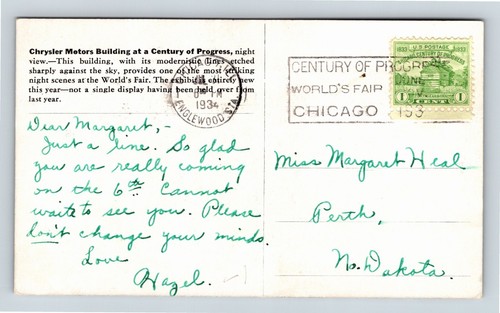 Chrysler Motors Building at a Century of Progress, night
view.—This building, with its modernistic lines etched
sharply against the sky, provides one of the most striking
night scenes at the World's Fair. The exhibit is entirely new
this year—not a single display having been held over from
last year.
1934
ENGLEWOOD STA.
CENTURY OF PROGRESS
WORLD'S FAIR
CHICAGO
193
U.S. POSTAGE
CENTURY OF PROGRESS
1 CENT 1
Dear Margaret,-
Just a line. So glad
you are really coming
on the 6th. Cannot
waite to see you. Please
don't change your minds.
Love
Hazel.
Miss Margaret Heal
Perth,
No. Dakota.